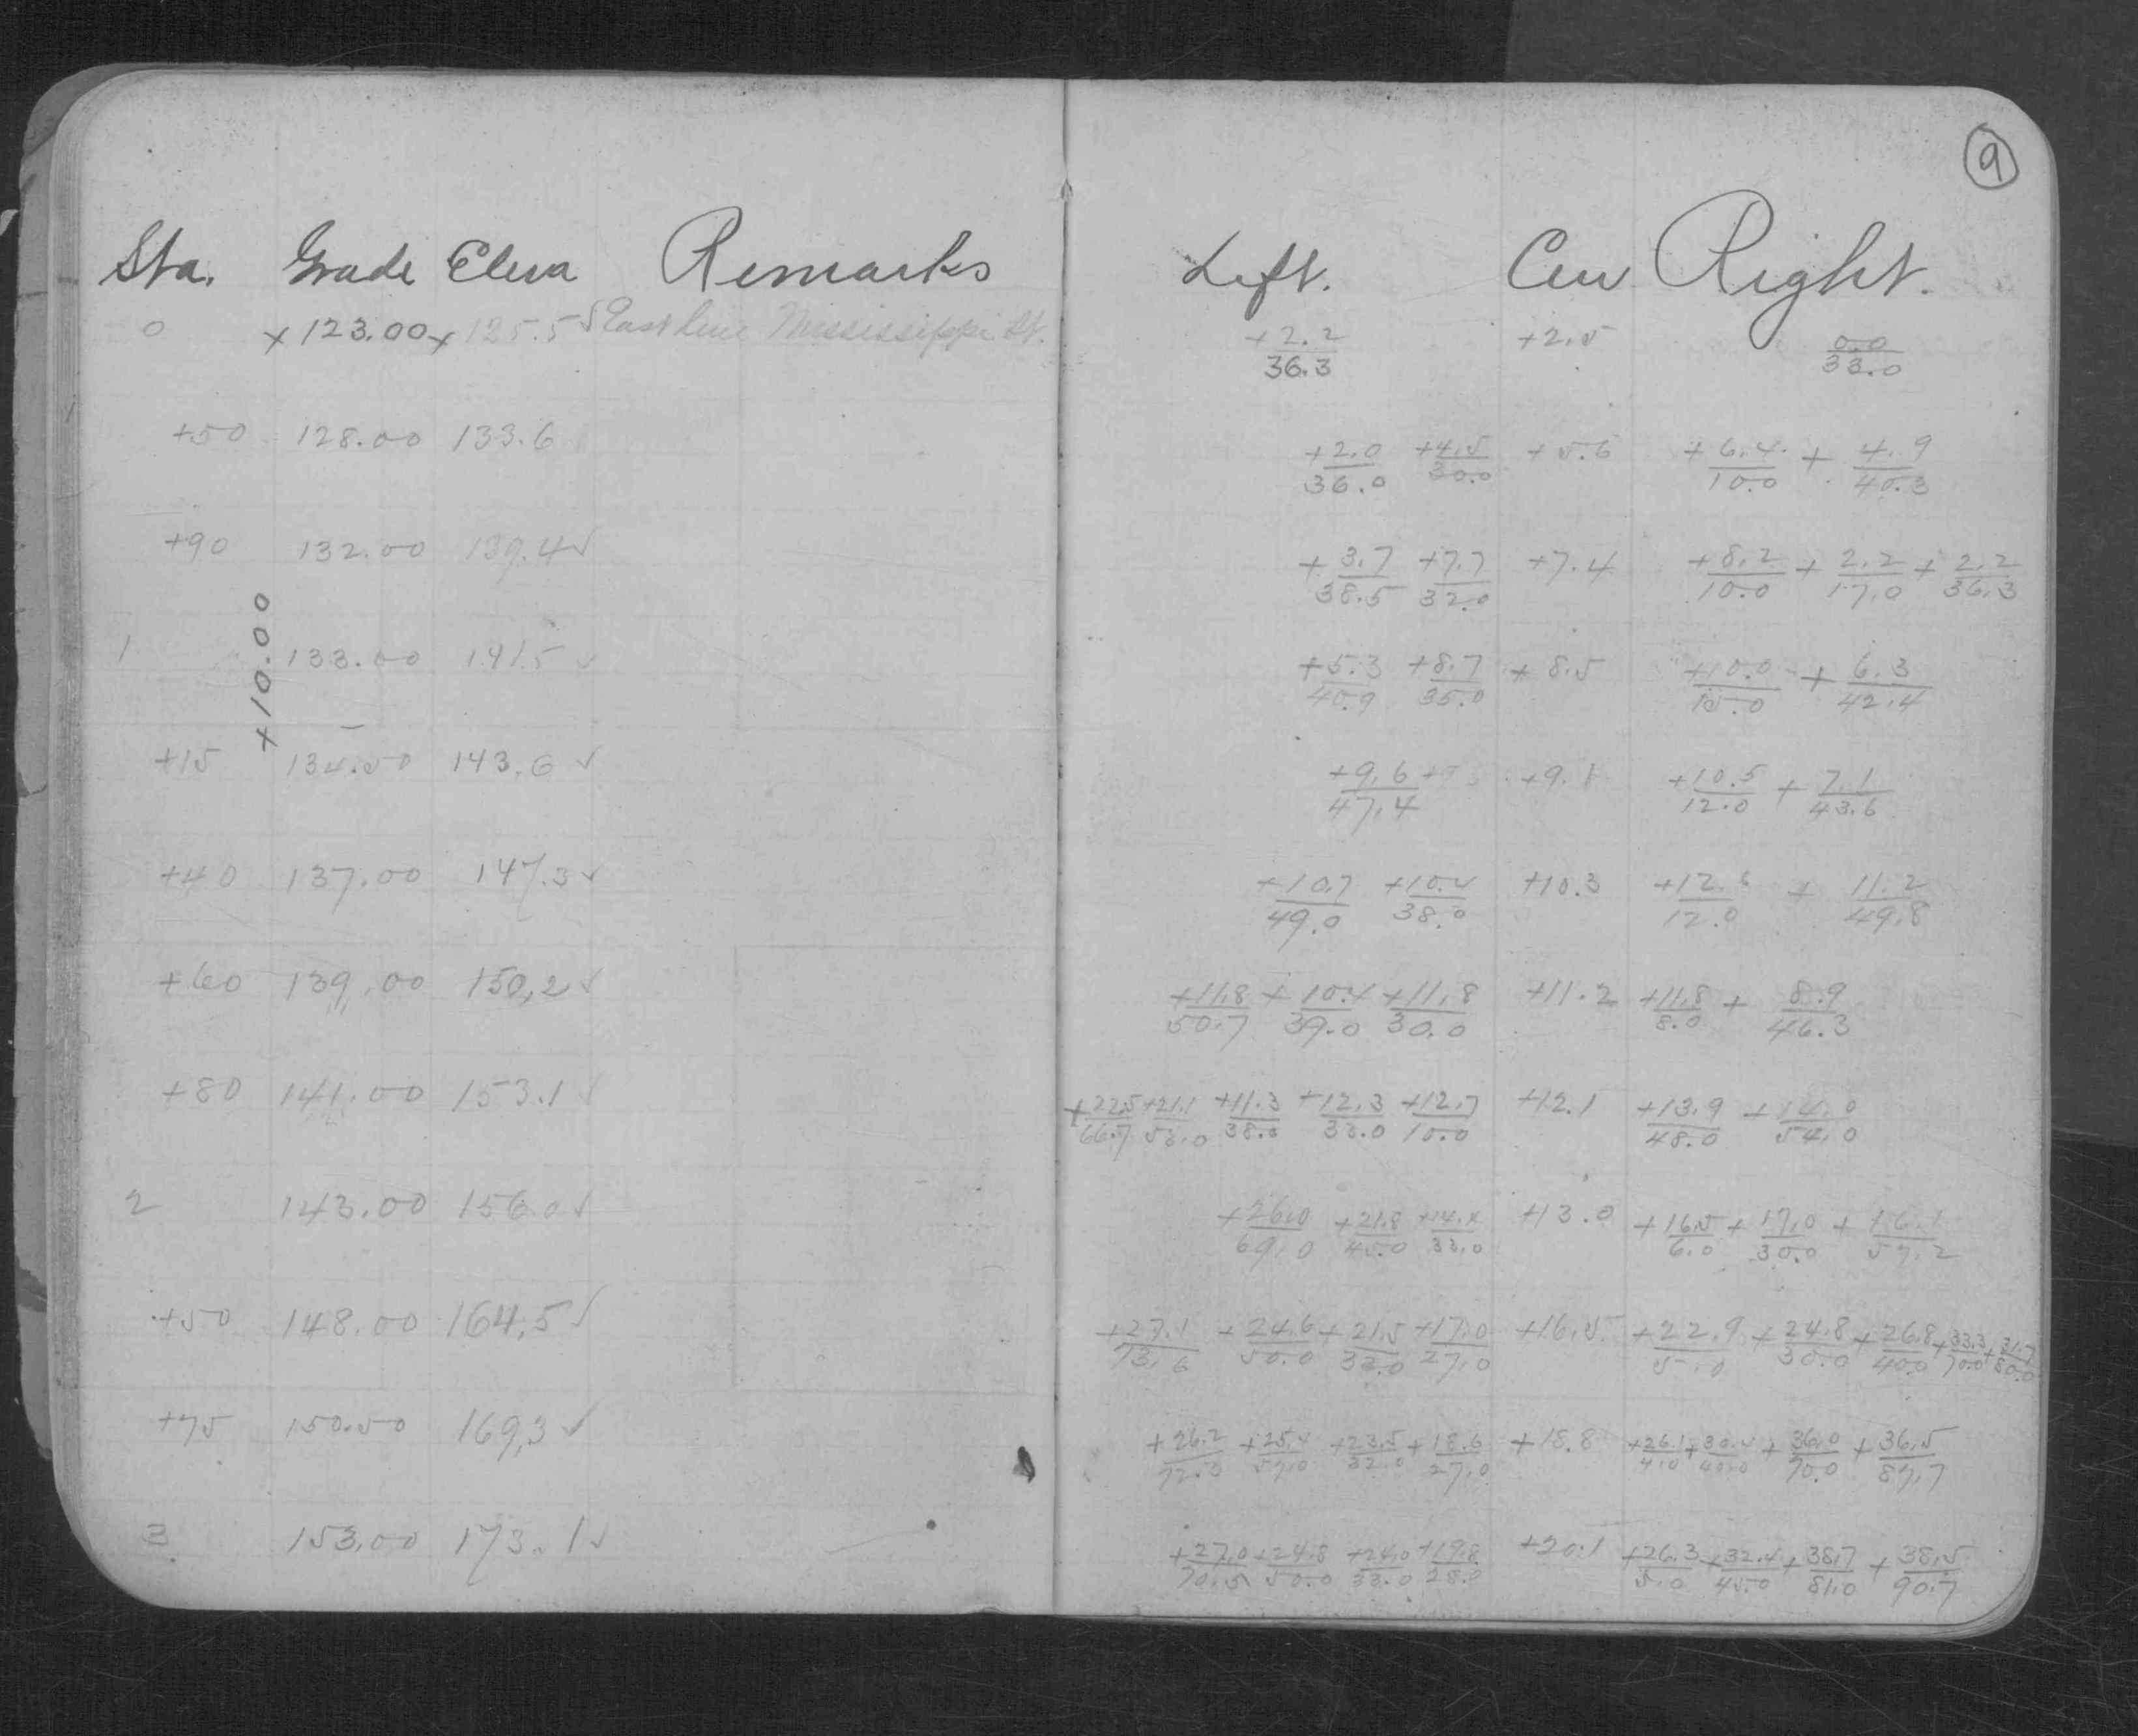 9
Sta. Grade Eleva Remarks Left. Cen Right.
0 x 123.00 x 125.5 √ East line Mississippi St. +2.2/36.3 +2.5 0.0/33.0
+50 128.00 133.6 +2.0/36.0 +4.5/30.0 +5.6 +6.4/10.0 +4.9/40.3
+90 132.00 139.4 √ +3.7/38.5 +7.7/32.0 +7.4 +8.2/10.0 +2.2/17.0 +2.2/36.3
+10.00
1 133.00 141.5 √ +5.3/40.9 +8.7/35.0 +8.5 +10.0/15.0 +6.3/42.4
+15 134.50 143.6 √ +9.6/47.4 +9.1 +10.5/12.0 +7.1/43.6
+40 137.00 147.3 √ +10.7/49.0 +10.4/38.0 +10.3 +12.6/12.0 +11.2/49.8
+60 139.00 150.2 √ +11.8/50.7 +10.4/39.0 +11.8/30.0 +11.2 +11.8/8.0 +8.9/46.3
+80 141.00 153.1 √ +22.5/66.7 +21.1/53.0 +11.3/38.0 +12.3/33.0 +12.7/10.0 +12.1 +13.9/48.0 +14.0/54.0
2 143.00 156.0 √ +26.0/69.0 +21.8/45.0 +14.4/33.0 +13.0 +16.5/6.0 +17.0/30.0 +16.1/57.2
+50 148.00 164.5 √ +27.1/73.6 +24.6/50.0 +21.5/33.0 +17.0/27.0 +16.5 +22.9/5.0 +24.8/30.0 +26.8/40.0 +33.3/70.0 +31.7/80.0
+75 150.50 169.3 √ +26.2/72.3 +25.4/57.0 +23.5/32.0 +18.6/27.0 +18.8 +26.1/4.0 +30.4/40.0 +36.0/70.0 +36.5/87.7
3 153.00 173.1 √ +27.0/70.5 +24.8/50.0 +24.0/33.0 +19.8/28.0 +20.1 +26.3/5.0 +32.4/45.0 +38.7/81.0 +38.5/90.7